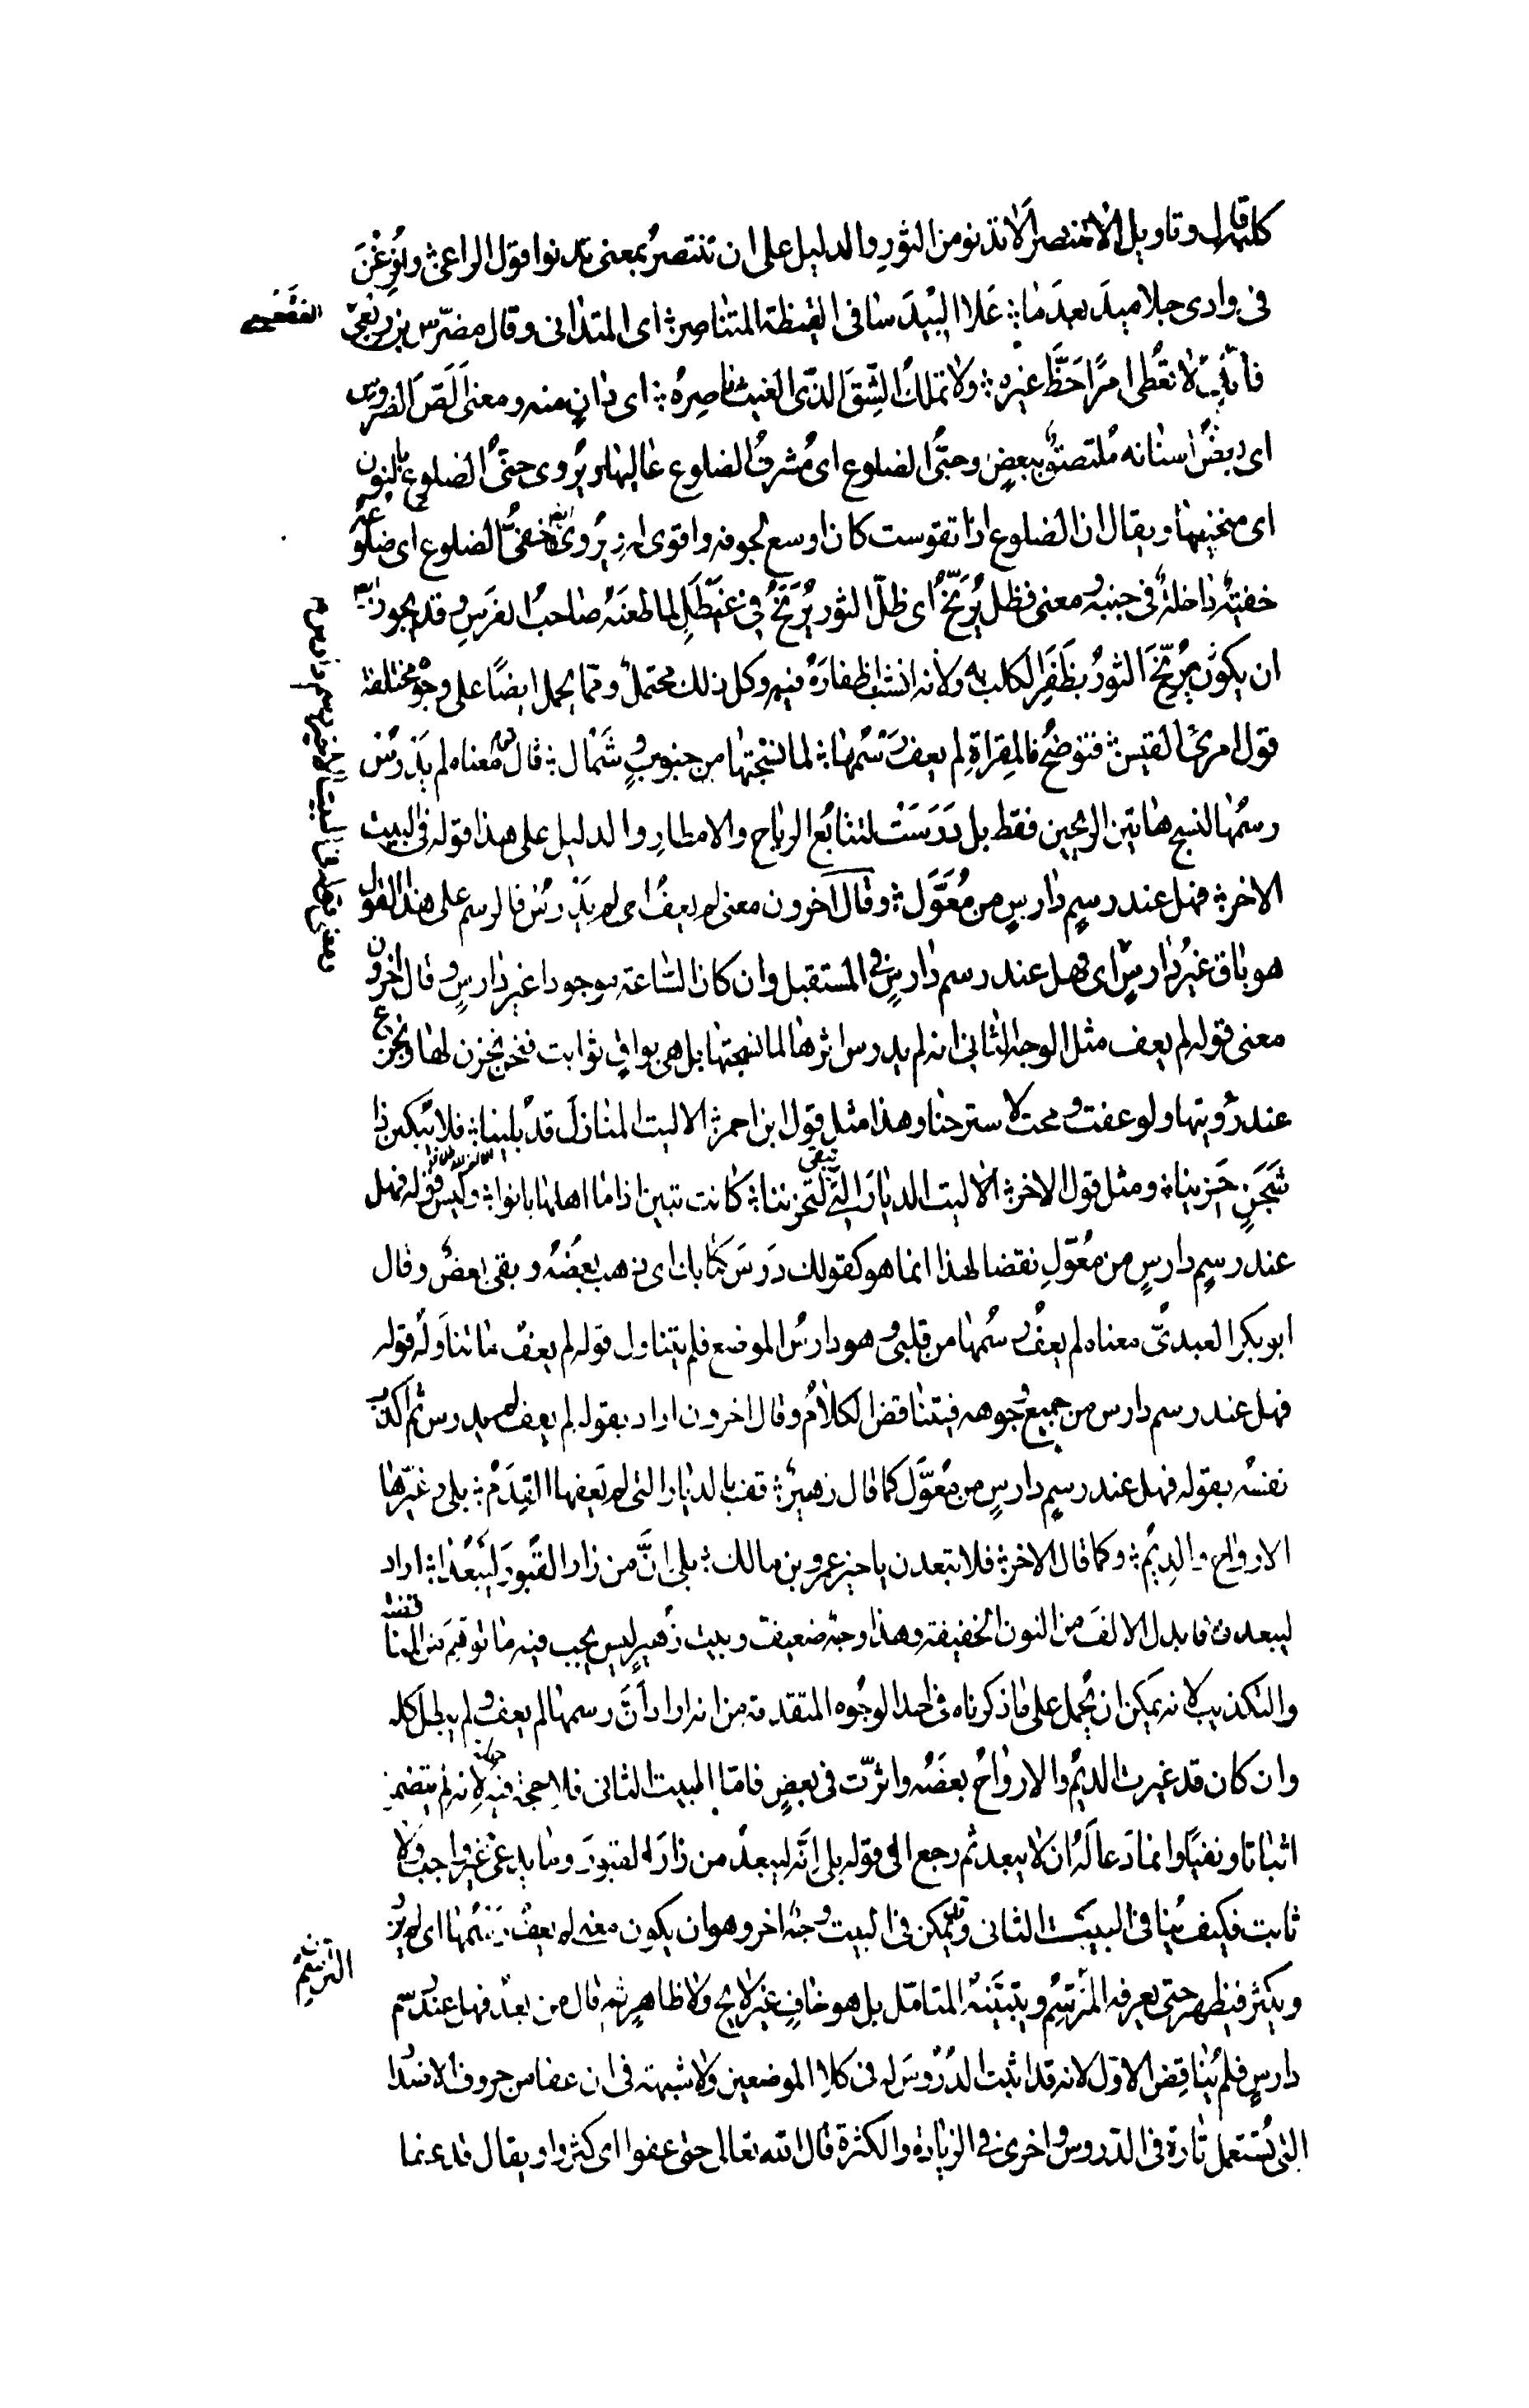 كلابها وتاويل الا تنتصر الا تدنو من الثور والدليل على ان تنتصر بمعنى تدنوا قول الراعى وافرغن
فى وادى جلاميد بعد ما علا البيد سافى القيظة المتناصر اى المتدانى وقال مضرس بن ربعى
فانك لا تعطى امرًا حَظَّ غيره ولا تملك الشقّ الذى الغيث ناصره اى دان منه ومعنى الصّ الضروس
اى بعض اسنانه ملتصق ببعض وحَبّى الضلوع اى مشرف الضلوع عاليها ويروى حنىّ الضلوع بالنون
اى منحنيها ويقال ان الضلوع اذا تقوست كان اوسع لجوفه واقوى له ويروى ايضا خفىّ الضلوع اى ضلوعه
خفية داخلة فى جنبه ومعنى فظل يُرَنّحُ اى ظلّ الثور يُرَنّحُ فى غَيْطَلٍ لما طعنه صاحب الفرس وقد يجوز ايضا
ان يكون يرنّح الثور بظفر الكلب به ولانه انشب اظفاره فيه وكل ذلك محتمل ومما يحمل ايضًا على وجوه مختلفة
قول امرئ القيس فتوضح فالمقراة لم يعف رسمها لما نسجتها من جنوب وشمأل قال قوم معناه لم يدرس
رسمها لنسج هاتين الريحين فقط بل دَرَسَتْ لتتابع الرياح والامطار والدليل على هذا قوله فى البيت
الاخر فهل عند رسم دارس من معوّل وقال آخرون معنى لم يعف اى لم يدرس فالرسم على هذا القول
هو باق غير دارس اى فهل عند رسم دارس فى المستقبل وان كان الساعة موجودا غير دارس وقال اخرون
معنى قوله لم يعف مثل الوجه الثانى انه لم يدرس اثرها لما نسجتها بل هى بواقٍ ثوابت فنحن نحزن لها ونجزع
عند رؤيتها ولو عفت ومحت لاسترحنا وهذا مثل قول ابن احمر الا ليت المنازل قد بلينا فلا يبكين ذا
شَجَنٍ حزينا ومثل قول الاخر الا ليت الديار التى تبقى لتحزننا كانت تبين اذا ما اهلها بانوا وليس قوله فهل
عند رسم دارس من معوّل نقضا لهذا انما هو كقولك درس كتابك اى ذهب بعضه وبقى بعض وقال
ابو بكر العبدىّ معناه لم يعف رسمها من قلبى وهو دارس الموضع فلم يتناول قوله لم يعف ما تناوله قوله
فهل عند رسم دارس من جميع وجوهه فيتناقض الكلام وقال اخرون اراد بقوله لم يعف لم يدرس ثم اكذب
نفسه بقوله فهل عند رسم دارس من معوّل كما قال زهير قف بالديار التى لم يعفها القِدَمُ بلى وغيّرها
الارواح والديم وكما قال الاخر فلا تبعدن يا خير عمرو بن مالك بلى انّ من زار القبور ليبعدا اراد
ليبعدن فابدل الالف من النون الخفيفة وهذا وجه ضعيف وبيت زهير ليس يجب فيه ما توهّم من المناقضة
والتكذيب لانه يمكن ان يحمل على ما ذكرناه فى احد الوجوه المتقدمة من انه اراد أنّ رسمها لم يعف ولم يبطل كله
وان كان قد غيرت الديم والارواح بعضه واثرّت فى بعض فامّا البيت الثانى فلا حجة فيه لانه لم يتضمن
اثباتا ونفيًا وانما دعا له ان لا يبعد ثم رجع الى قوله بلى انّه ليبعد من زار القبور وما يدعى غير واجب ولا
ثابت فكيف ينافى البيت الثانى وقد يمكن فى البيت وجه اخر وهو ان يكون معنى لم يعف رسمها اى لم يزد
ويكثر فيظهر حتى يعرفه المترسّم ويتبيّنه المتامّل بل هو خافٍ غير لايح ولا ظاهر ثم قال من بعد فهل عند رسم
دارس فلم يناقض الاوّل لانه قد اثبت الدروس له فى كلا الموضعين ولا شبهة فى ان عفا من حروف الاضداد
التى تستعمل تارة فى الدروس واخرى فى الزيادة والكثرة قال الله تعالى حتى عفوا اى كثروا ويقال قد عفا
الترسّم